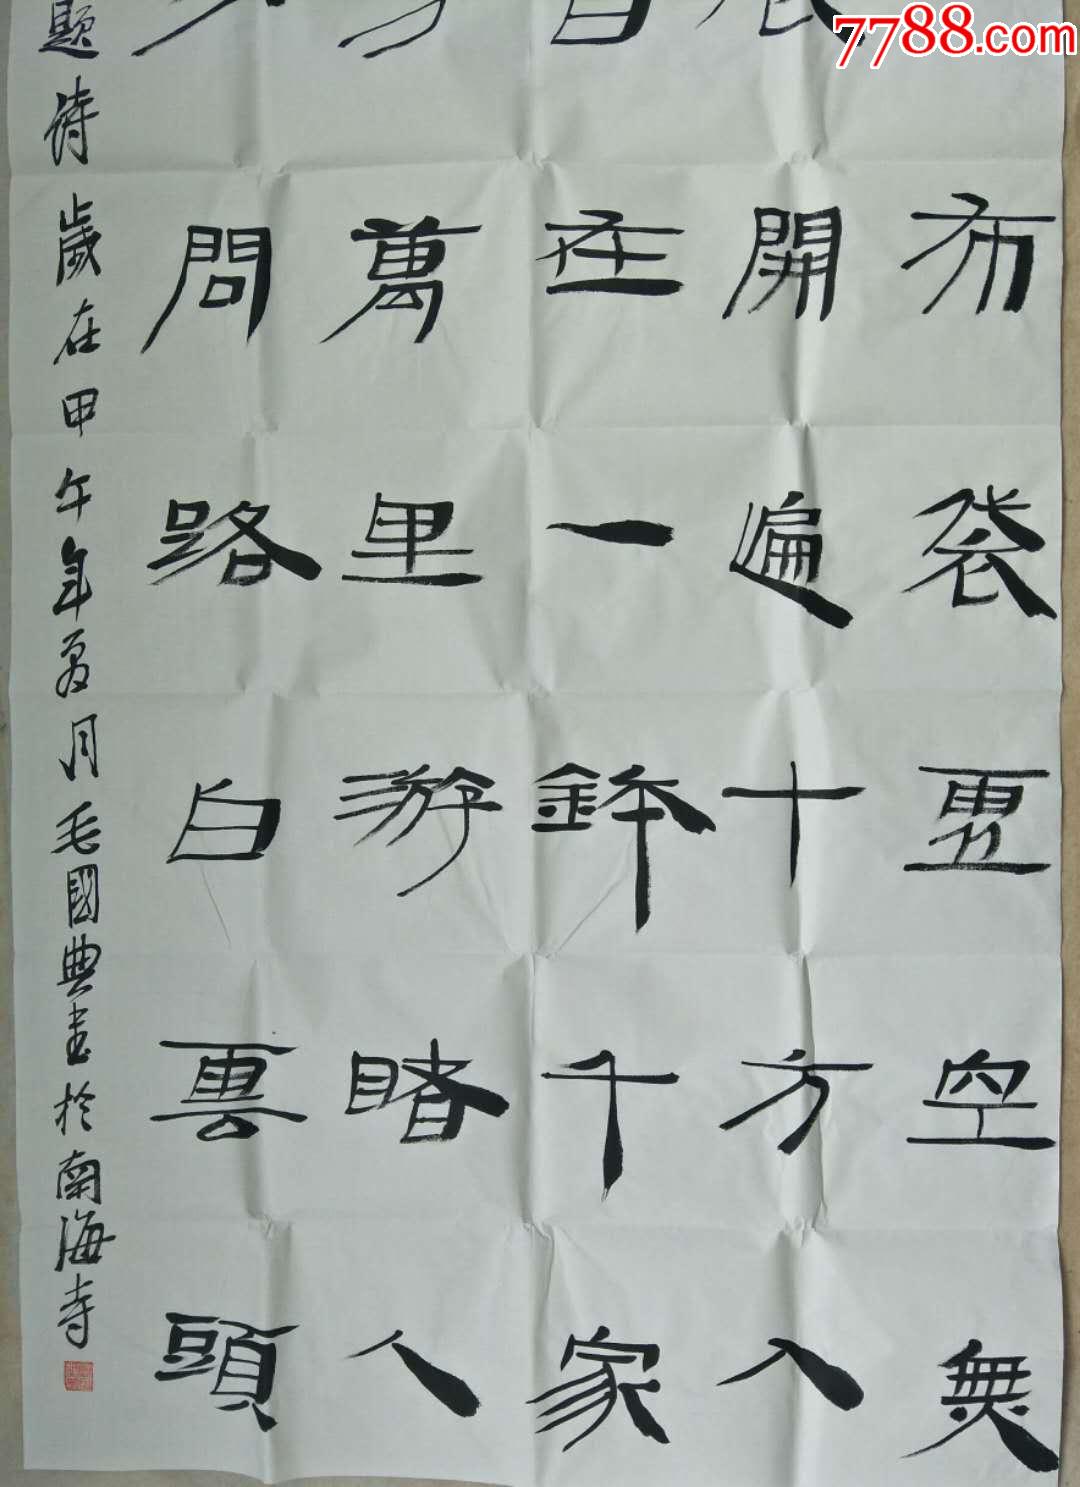 布袋虚空無
開遍十方入
在一鉢千家
萬里游睹人
問路白雲頭
題詩歲在甲午年夏月毛國典書於南海寺
7788.com